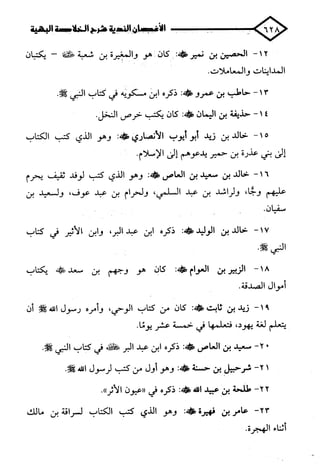 ٦٢٨ الأغصان الندية شرح الخلاصة البهية
١٢- الحصين بن نمير ﷺ: كان هو والمغيرة بن شعبة ﷺ - يكتبان
المداينات والمعاملات.
١٣- حاطب بن عمرو ﷺ: ذكره ابن مسكويه في كتاب النبي ﷺ.
١٤- حذيفة بن اليمان ﷺ: كان يكتب خرص النخل.
١٥- خالد بن زيد أبو أيوب الأنصاري ﷺ: وهو الذي كتب الكتاب
إلى بني عذرة بن حمير يدعوهم إلى الإسلام.
١٦- خالد بن سعيد بن العاص ﷺ: وهو الذي كتب لوفد ثقيف يحرم
عليهم وجًا، ولراشد بن عبد السلمي، ولحرام بن عبد عوف، ولسعيد بن
سفيان.
١٧- خالد بن الوليد ﷺ: ذكره ابن عبد البر، وابن الأثير في كتاب
النبي ﷺ.
١٨- الزبير بن العوام ﷺ: كان هو وجهم بن سعد ﷺ يكتاب
أموال الصدقة.
١٩- زيد بن ثابت ﷺ: كان من كتاب الوحي، وأمره رسول الله ﷺ أن
يتعلم لغة يهود، فتعلمها في خمسة عشر يومًا.
٢٠- سعيد بن العاص ﷺ: ذكره ابن عبد البر ﷺ في كتاب النبي ﷺ.
٢١- شرحبيل بن حسنة ﷺ: وهو أول من كتب لرسول الله ﷺ.
٢٢- طلحة بن عبيد الله ﷺ: ذكره في «عيون الأثر».
٢٣- عامر بن فهيرة ﷺ: وهو الذي كتب الكتاب لسراقة بن مالك
أثناء الهجرة.